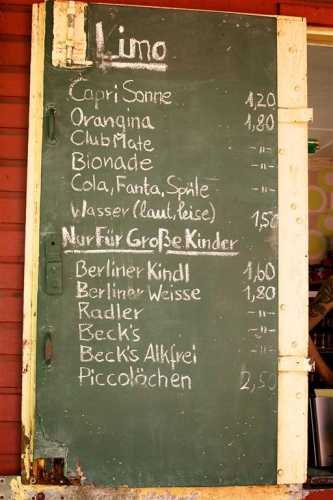 Limo
Capri Sonne 1,20
Orangina 1,80
Club Mate -"-
Bionade -"-
Cola, Fanta, Spüle -"-
Wasser (laut, leise) 1,50
Nur Für Große Kinder
Berliner Kindl 1,60
Berliner Weisse 1,80
Radler -"-
Beck's -"-
Beck's Alkfrei -"-
Piccolöchen 2,50